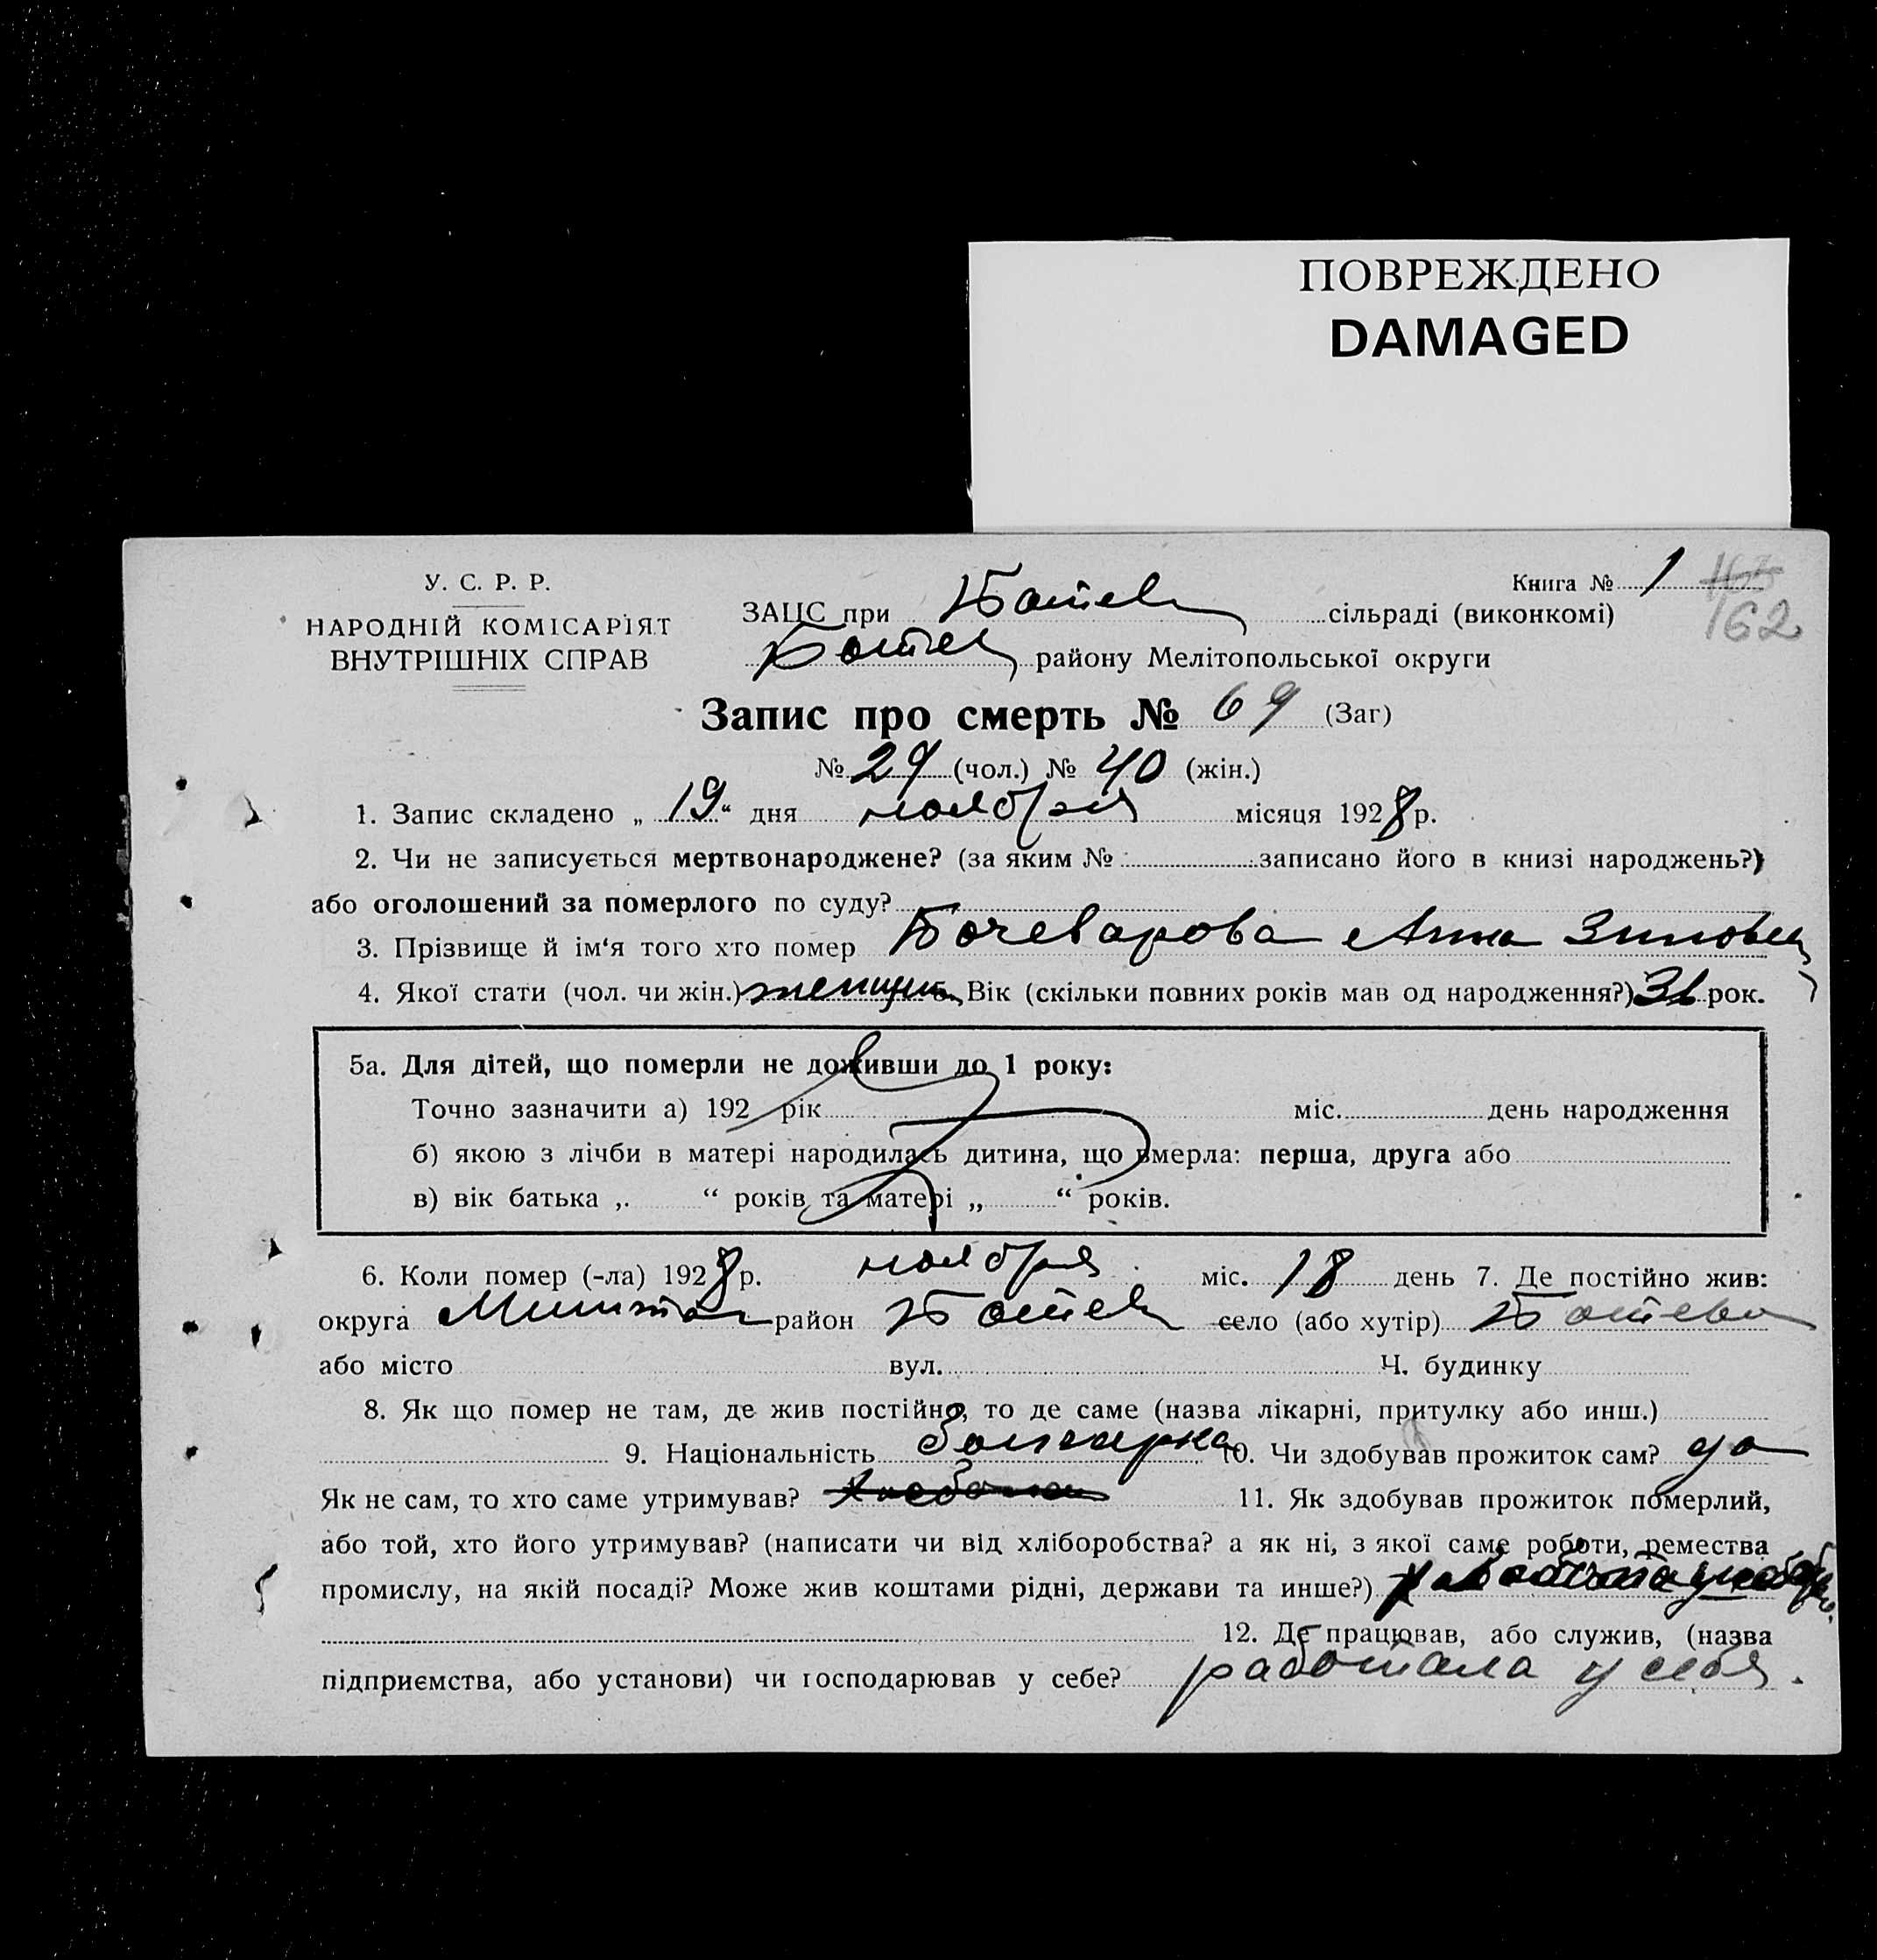 ПОВРЕЖДЕНО
DAMAGED
У. С. Р. Р.
НАРОДНІЙ КОМІСАРІЯТ
ВНУТРІШНІХ СПРАВ
Книга № 1 163
162
ЗАЦС при Ботев сільраді (виконкомі)
Ботев району Мелітопольської округи
Запис про смерть № 69 (Заг)
№ 29 (чол.) № 40 (жін.)
1. Запис складено „ 19 “ дня ноября місяця 1928 р.
2. Чи не записується мертвонароджене? (за яким № записано його в книзі народжень?)
або оголошений за померлого по суду?
3. Прізвище й ім‘я того хто помер Бочеварова Анна Зиновьев
4. Якої стати (чол. чи жін.) женщин 5. Вік (скільки повних років мав од народження?) рок.
5а. Для дітей, що померли не доживши до 1 року:
Точно зазначити а) 192 рік міс. день народження
б) якою з лічби в матері народилась дитина, що вмерла: перша, друга або
в) вік батька „ “ років та матері „ “ років.
6. Коли помер (-ла) 1928 р. ноября міс. 18 день 7. Де постійно жив:
округа район Ботев село (або хутір) Ботево
або місто вул. Ч. будинку
8. Як що помер не там, де жив постійно, то де саме (назва лікарні, притулку або инш.)
9. Національність болгарка 10. Чи здобував прожиток сам? да
Як не сам, то хто саме утримував? 11. Як здобував прожиток померлий,
або той, хто його утримував? (написати чи від хліборобства? а як ні, з якої саме роботи, ремества
промислу, на якій посаді? Може жив коштами рідні, держави та инше?)
12. Де працював, або служив, (назва
підприємства, або установи) чи господарював у себе? работала у себя.